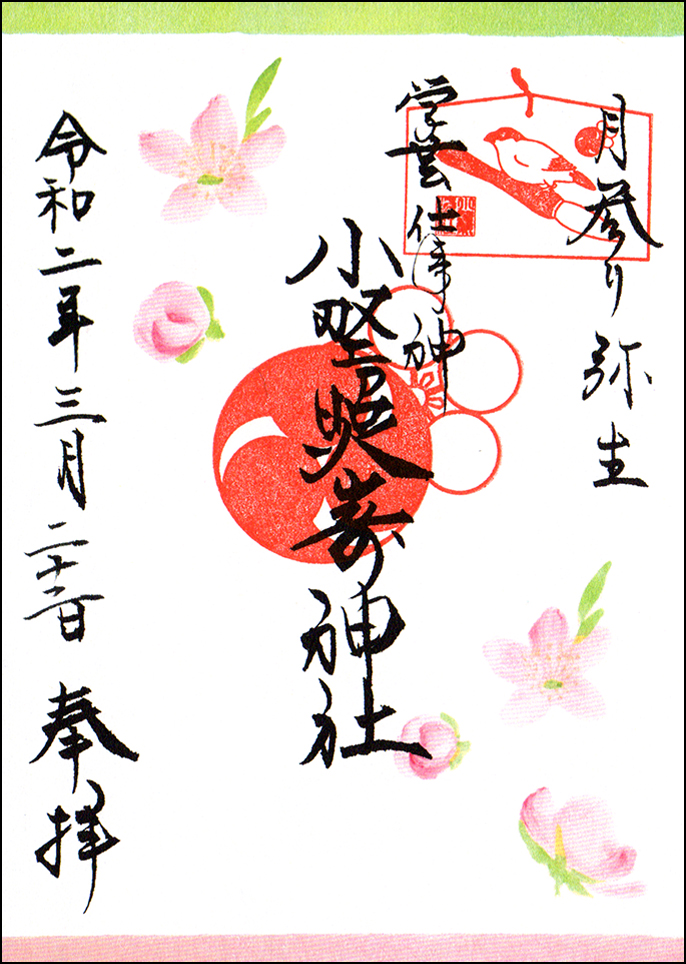 月参り 弥生
学芸 仕事 神
小野照嵜神社
令和二年三月二十日 奉拝